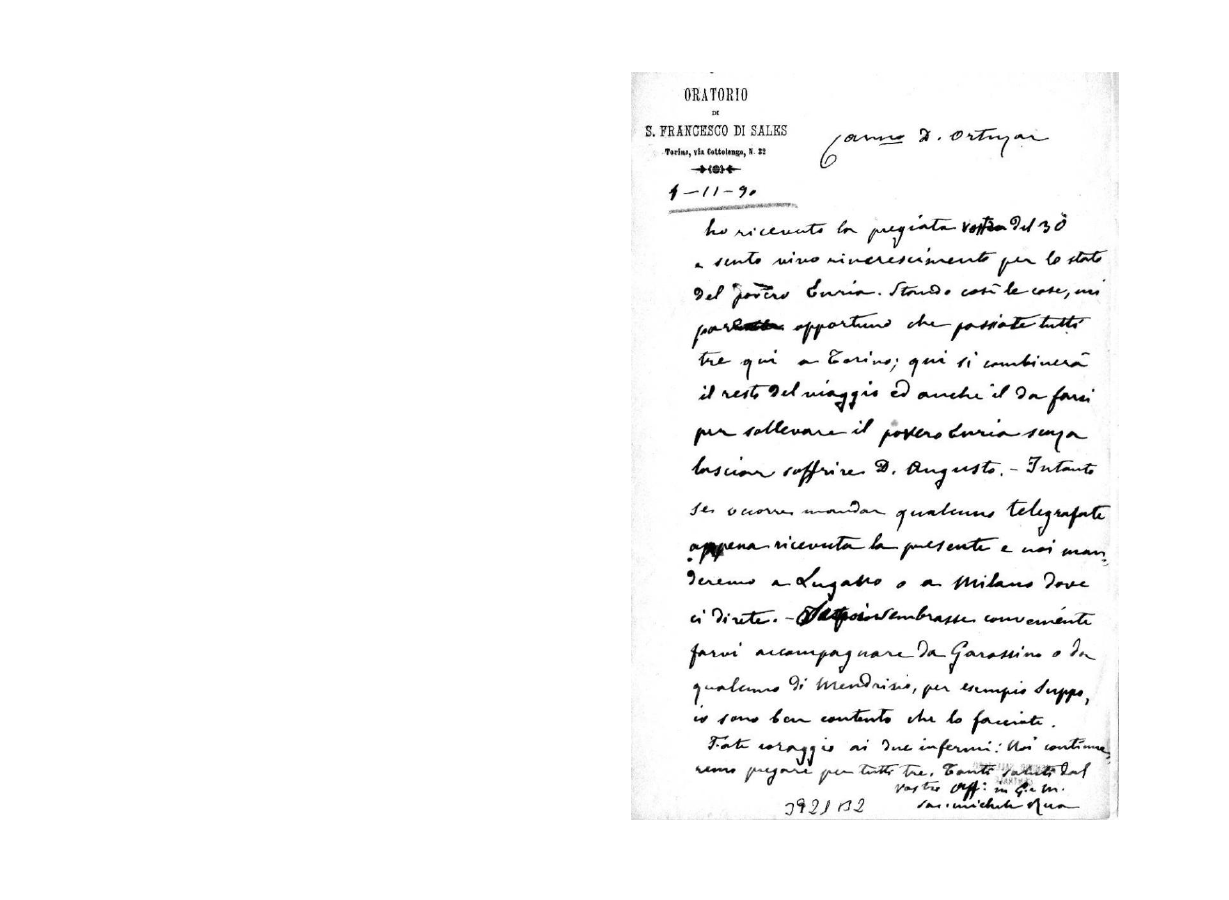 ORATORIO
DI
S. FRANCESCO DI SALES
Torino, via Cottolengo, N. 32
Carmo D. Ortuzar
1-11-90
ho ricevuto la pregiata vostra del 30
e sento vivo rincrescimento per lo stato
del povero Curia. Stando così le cose, mi
par opportuno che passiate tutti
tre qui a Torino; qui si combinerà
il resto del viaggio ed anche il da farsi
per sollevare il povero Curia senza
lasciar soffrire D. Augusto. - Intanto
se occorre mandar qualcuno telegrafate
appena ricevuta la presente e noi man-
deremo a Lugano o a Milano dove
ci direte. - Se poi sembrasse conveniente
farvi accompagnare da Garassino o da
qualcuno di Mendrisio, per esempio Suppo,
io sono ben contento che lo facciate.
Fate coraggio ai due infermi: Noi continue-
remo pregare per tutti tre. Tanti saluti dal
vostro aff: in G. e M.
Sac. Michele Rua